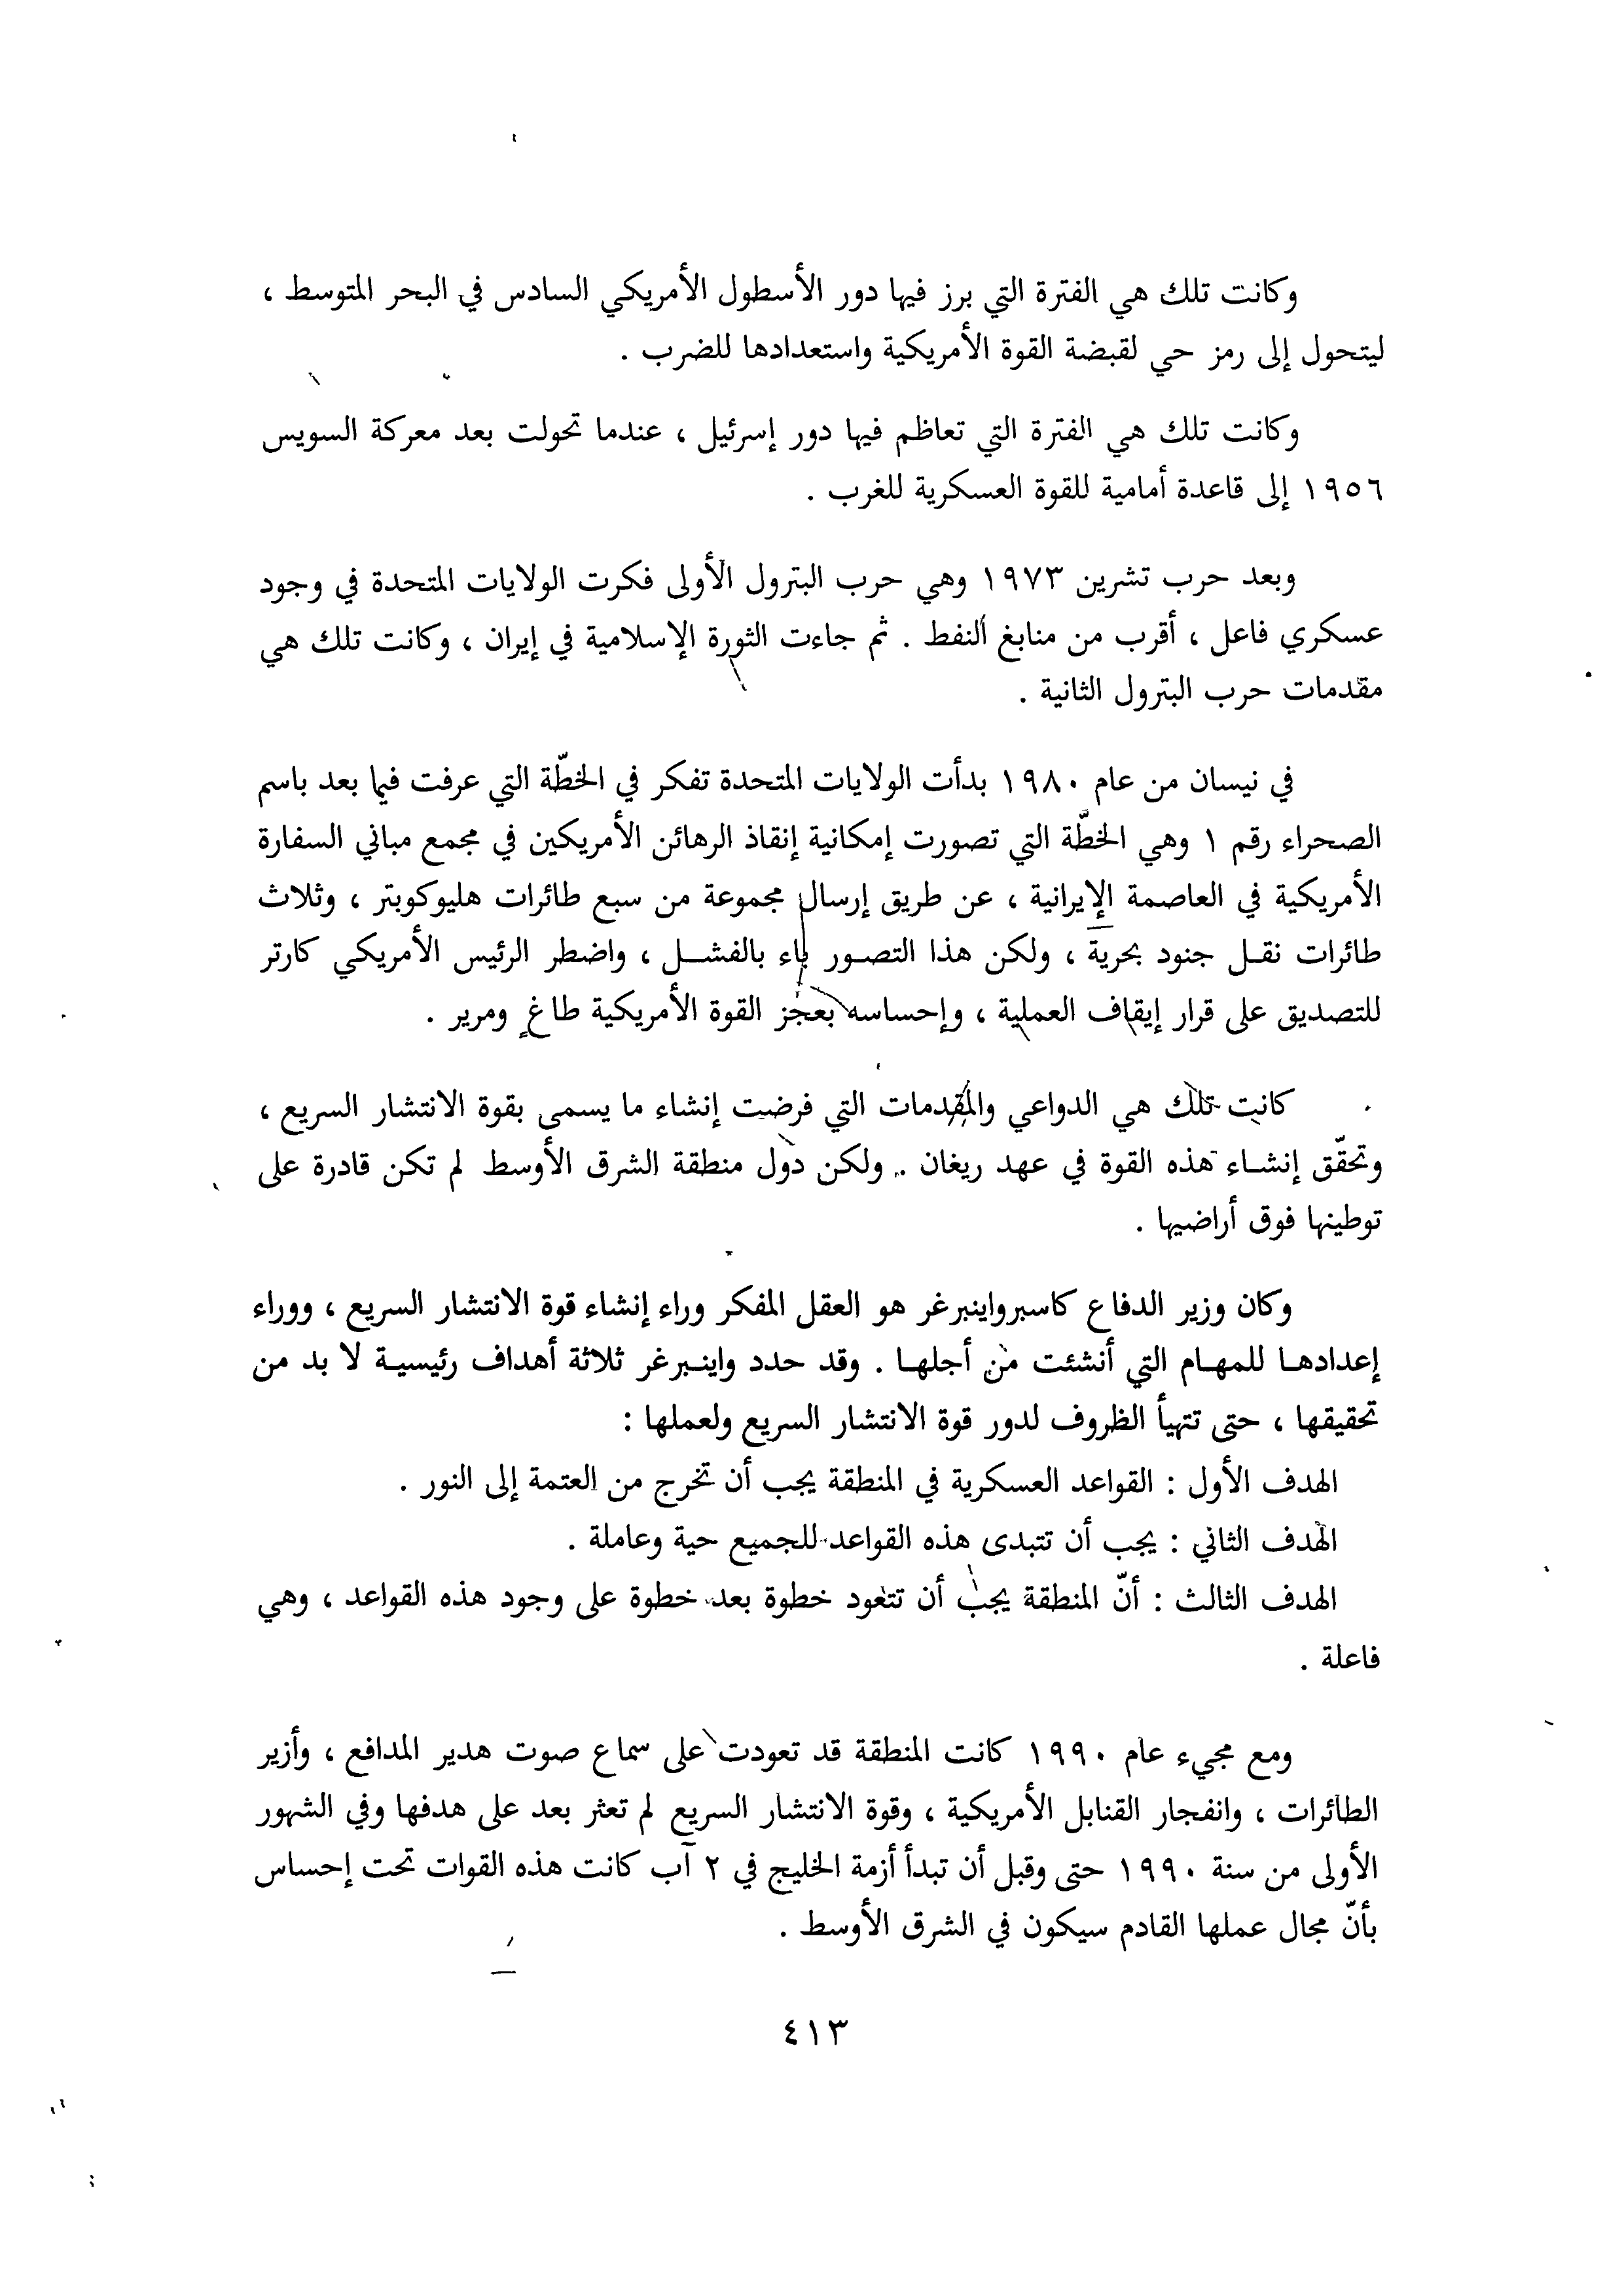 وكانت تلك هي الفترة التي برز فيها دور الأسطول الأمريكي السادس في البحر المتوسط ،
ليتحول إلى رمز حي لقبضة القوة الأمريكية واستعدادها للضرب .
وكانت تلك هي الفترة التي تعاظم فيها دور إسرئيل ، عندما تحولت بعد معركة السويس
١٩٥٦ إلى قاعدة أمامية للقوة العسكرية للغرب .
وبعد حرب تشرين ١٩٧٣ وهي حرب البترول الأولى فكرت الولايات المتحدة في وجود
عسكري فاعل ، أقرب من منابغ ألنفط . ثم جاءت الثورة الإسلامية في إيران ، وكانت تلك هي
مقدمات حرب البترول الثانية .
في نيسان من عام ١٩٨٠ بدأت الولايات المتحدة تفكر في الخطّة التي عرفت فيما بعد باسم
الصحراء رقم ١ وهي الخطّة التي تصورت إمكانية إنقاذ الرهائن الأمريكين في مجمع مباني السفارة
الأمريكية في العاصمة الإيرانية ، عن طريق إرسال مجموعة من سبع طائرات هليوكوبتر ، وثلاث
طائرات نقـل جنود بحرية ، ولكن هذا التصـور باء بالفشـــل ، واضطر الرئيس الأمريكي كارتر
للتصديق على قرار إيقاف العملية ، وإحساسه بعجز القوة الأمريكية طاغٍ ومرير .
كانت تلك هي الدواعي والمقدمات التي فرضت إنشاء ما يسمى بقوة الانتشار السريع ،
وتحقّق إنشـاء هذه القوة في عهد ريغان . ولكن دول منطقة الشرق الأوسط لم تكن قادرة على
توطينها فوق أراضيها .
وكان وزير الدفاع كاسبرواينبرغر هو العقل المفكر وراء إنشاء قوة الانتشار السريع ، ووراء
إعدادهـا للمهـام التي أنشئت من أجلهـا . وقد حدد واينـبرغر ثلاثة أهداف رئيسيـة لا بد من
تحقيقها ، حتى تتهيأ الظروف لدور قوة الانتشار السريع ولعملها :
الهدف الأول : القواعد العسكرية في المنطقة يجب أن تخرج من العتمة إلى النور .
الهدف الثاني : يجب أن تتبدى هذه القواعد للجميع حية وعاملة .
الهدف الثالث : أنّ المنطقة يجب أن تتعود خطوة بعد خطوة على وجود هذه القواعد ، وهي
فاعلة .
ومع مجيء عام ١٩٩٠ كانت المنطقة قد تعودت على سماع صوت هدير المدافع ، وأزير
الطائرات ، وانفجار القنابل الأمريكية ، وقوة الانتشار السريع لم تعثر بعد على هدفها وفي الشهور
الأولى من سنة ١٩٩٠ حتى وقبل أن تبدأ أزمة الخليج في ٢ آب كانت هذه القوات تحت إحساس
بأنّ مجال عملها القادم سيكون في الشرق الأوسط .
٤١٣